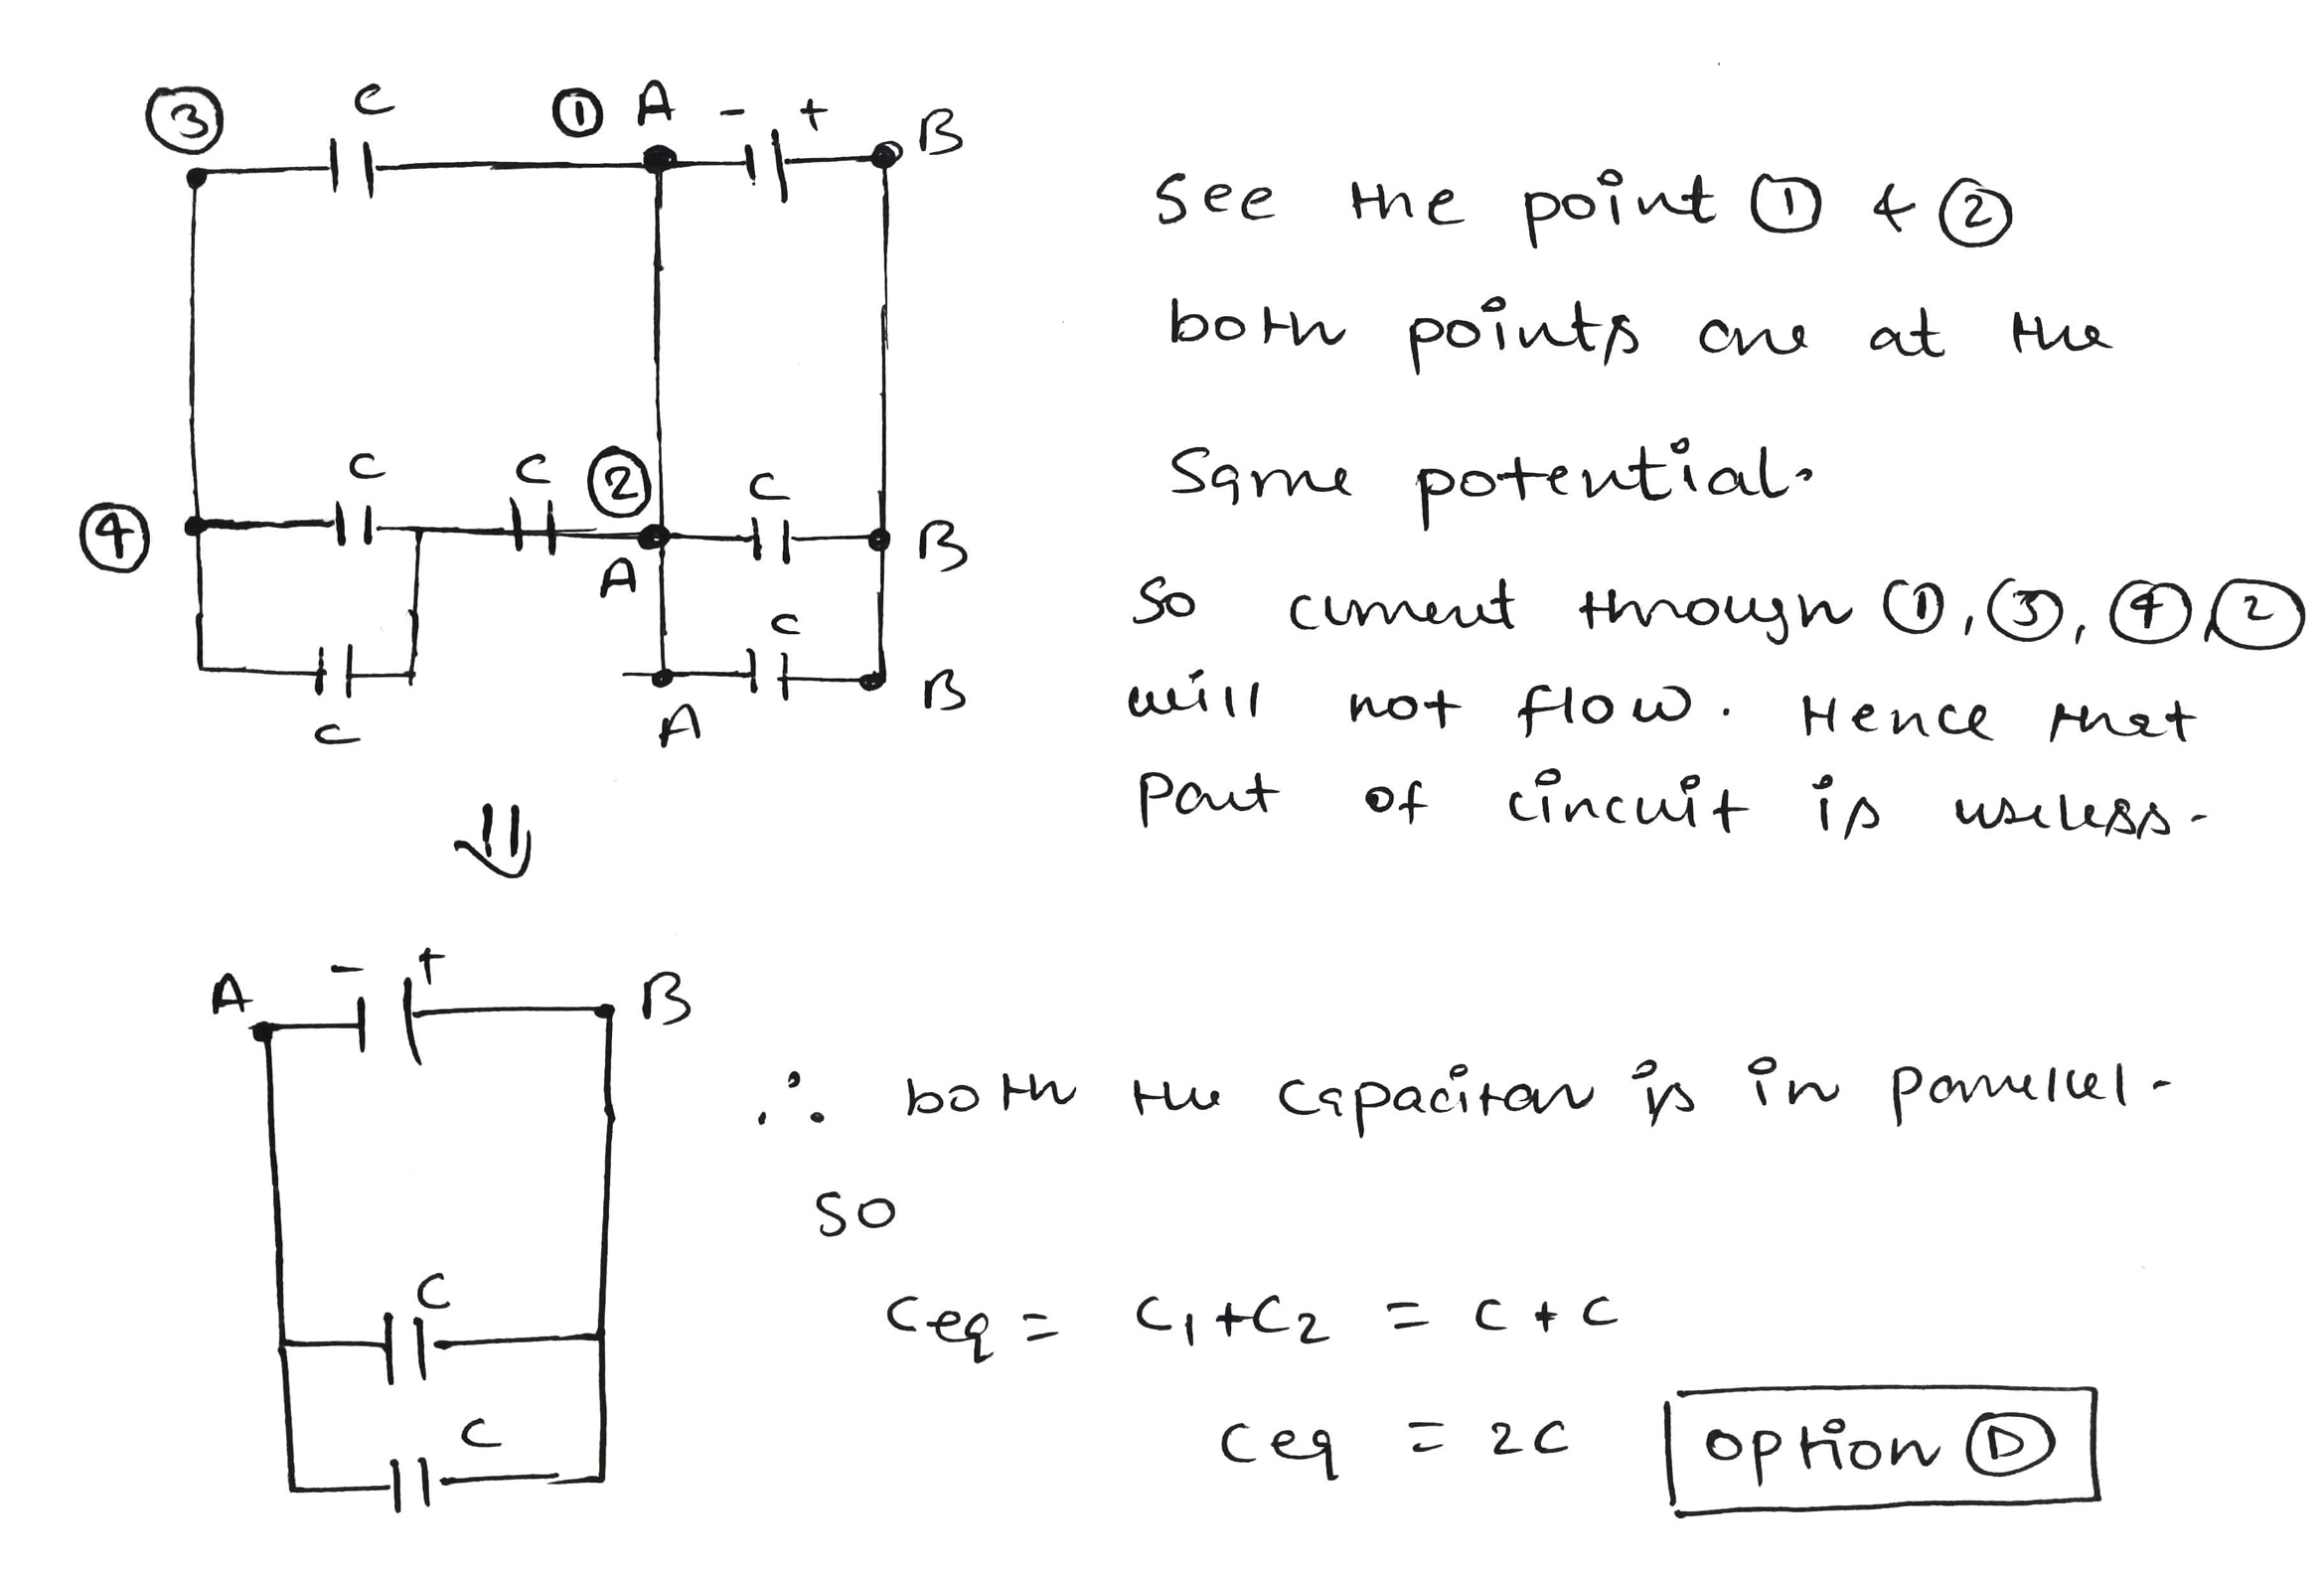 ③ C ① A - + B
See the point ① & ②
both points are at the
Same potential.
C C ② C
④ A B
So current through ①, ③, ④, ②
C
will not flow. Hence that
C A B
part of circuit is useless.
A - + B
∴ both the capacitor is in parallel.
so
C
Ceq = C1+C2 = C + C
C
Ceq = 2C option Ⓓ